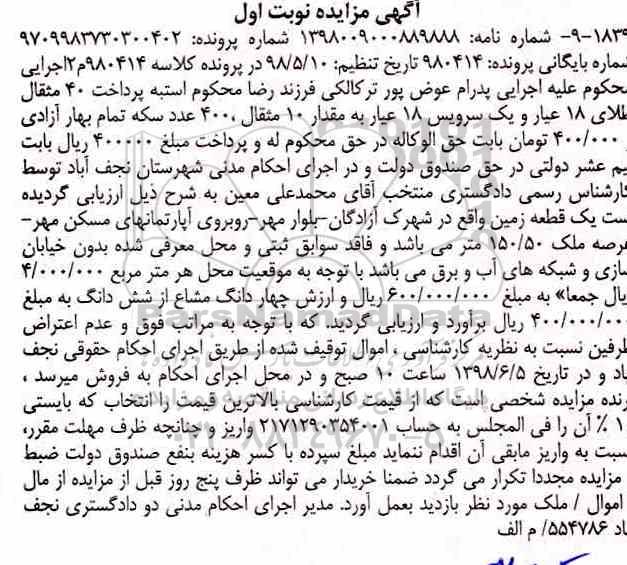 آگهی مزایده نوبت اول
۱۸۳۹-۹- شماره نامه: ۱۳۹۸۰۰۹۰۰۰۸۸۹۸۸۸ شماره پرونده: ۹۷۰۹۹۸۳۷۳۰۳۰۰۴۰۲
شماره بایگانی پرونده: ۹۸۰۴۱۴ تاریخ تنظیم: ۹۸/۵/۱۰ در پرونده کلاسه ۹۸۰۴۱۴م۲اجرایی
محکوم علیه اجرایی پدرام عوض پور ترکالکی فرزند رضا محکوم استبه پرداخت ۴۰ مثقال
طلای ۱۸ عیار و یک سرویس ۱۸ عیار به مقدار ۱۰ مثقال ،۴۰۰ عدد سکه تمام بهار آزادی
و ۴۰۰/۰۰۰ تومان بابت حق الوکاله در حق محکوم له و پرداخت مبلغ ۴۰۰۰۰۰ ریال بابت
نیم عشر دولتی در حق صندوق دولت و در اجرای احکام مدنی شهرستان نجف آباد توسط
کارشناس رسمی دادگستری منتخب آقای محمدعلی معین به شرح ذیل ارزیابی گردیده
است یک قطعه زمین واقع در شهرک آزادگان-بلوار مهر-روبروی آپارتمانهای مسکن مهر-
عرصه ملک ۱۵۰/۵۰ متر می باشد و فاقد سوابق ثبتی و محل معرفی شده بدون خیابان
سازی و شبکه های آب و برق می باشد با توجه به موقعیت محل هر متر مربع ۴/۰۰۰/۰۰۰
ریال جمعا» به مبلغ ۶۰۰/۰۰۰/۰۰۰ ریال و ارزش چهار دانگ مشاع از شش دانگ به مبلغ
۴۰۰/۰۰۰/۰۰۰ ریال برآورد و ارزیابی گردید. که با توجه به مراتب فوق و عدم اعتراض
طرفین نسبت به نظریه کارشناسی ، اموال توقیف شده از طریق اجرای احکام حقوقی نجف
آباد و در تاریخ ۱۳۹۸/۶/۵ ساعت ۱۰ صبح و در محل اجرای احکام به فروش میرسد ،
برنده مزایده شخصی است که از قیمت کارشناسی بالاترین قیمت را انتخاب که بایستی
۱۰ % آن را فی المجلس به حساب ۲۱۷۱۲۹۰۳۵۴۰۰۱ واریز و چنانچه ظرف مهلت مقرر،
نسبت به واریز مابقی آن اقدام ننماید مبلغ سپرده با کسر هزینه بنفع صندوق دولت ضبط
و مزایده مجددا تکرار می گردد ضمنا خریدار می تواند ظرف پنج روز قبل از مزایده از مال
/ اموال / ملک مورد نظر بازدید بعمل آورد. مدیر اجرای احکام مدنی دو دادگستری نجف
آباد ۵۵۴۷۸۶/ م الف
ParsNamadData
۰۲۱-۸۸۳۴۹۶۷۰-۵